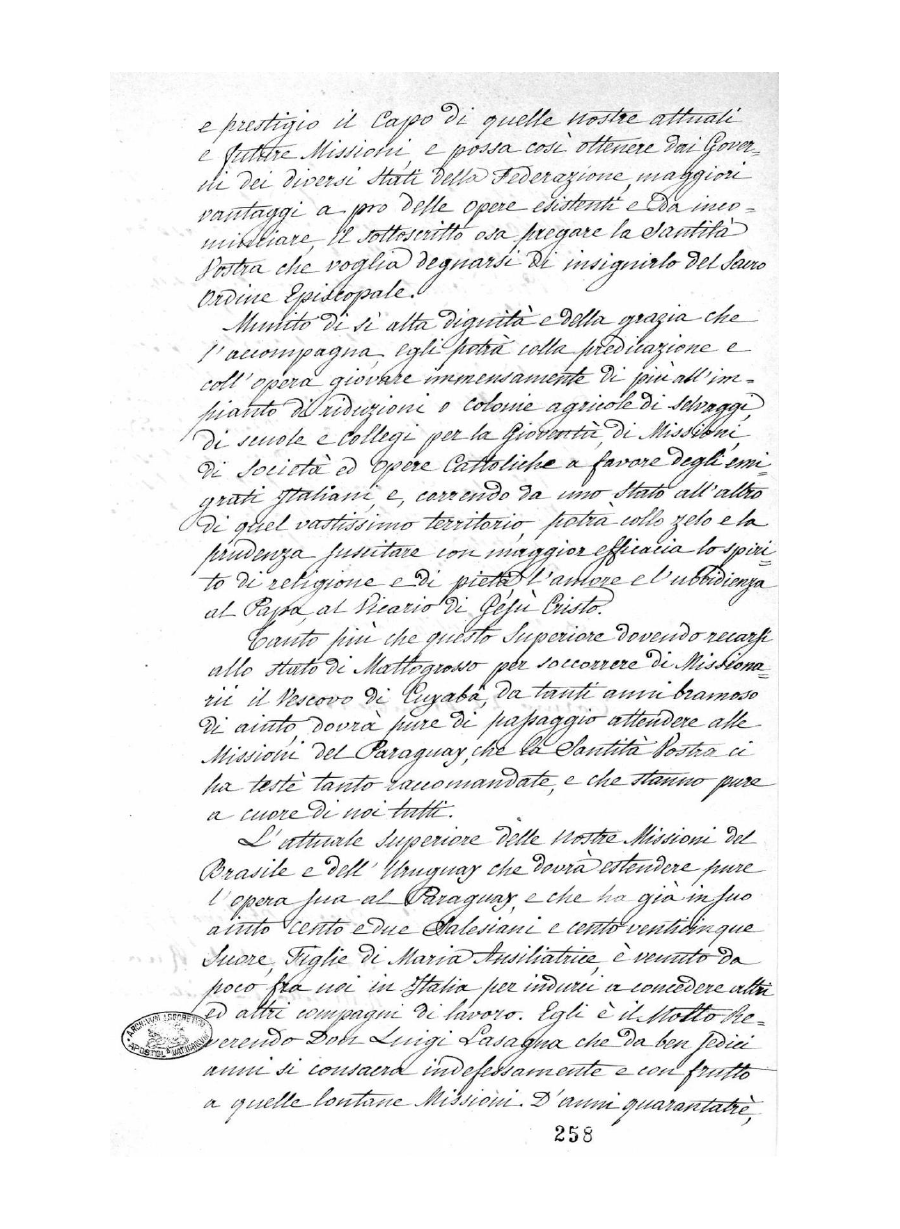 e prestigio il Capo di quelle nostre attuali
e future Missioni, e possa così ottenere dai Gover-
ni dei diversi Stati della Federazione, maggiori
vantaggi a pro delle opere esistenti e da inco-
minciare, il sottoscritto osa pregare la Santità
Vostra che voglia degnarsi di insignirlo del Sacro
Ordine Episcopale.
Munito di sì alta dignità e della grazia che
l'accompagna, egli potrà colla predicazione e
coll'opera giovare immensamente di più all'im-
pianto di riduzioni o colonie agricole di selvaggi,
di scuole e collegi per la Gioventù, di Missioni,
di Società ed Opere Cattoliche a favore degli emi=
grati Italiani, e, correndo da uno Stato all'altro
di quel vastissimo territorio, potrà collo zelo e la
prudenza suscitare con maggior efficacia lo spiri=
to di religione e di pietà, l'amore e l'ubbidienza
al Papa, al Vicario di Gesù Cristo.
Tanto più che questo Superiore dovendo recarsi
allo Stato di Mattogrosso per soccorrere di Missiona=
rii il Vescovo di Cuyabà, da tanti anni bramoso
di aiuto, dovrà pure di passaggio attendere alle
Missioni del Paraguay, che la Santità Vostra ci
ha testè tanto raccomandate, e che stanno pure
a cuore di noi tutti.
L'attuale Superiore delle nostre Missioni del
Brasile e dell'Uruguay che dovrà estendere pure
l'opera sua al Paraguay, e che ha già in suo
aiuto cento e due Salesiani e cento venticinque
Suore, Figlie di Maria Ausiliatrice, è venuto da
poco fra noi in Italia per indurci a concedere altri
ed altri compagni di lavoro. Egli è il Molto Re=
verendo Don Luigi Lasagna che da ben sedici
anni si consacra indefessamente e con frutto
a quelle lontane Missioni. D'anni quarantatrè,
ARCHIVUM SECRETUM
APOSTOL. VATICANUM
258